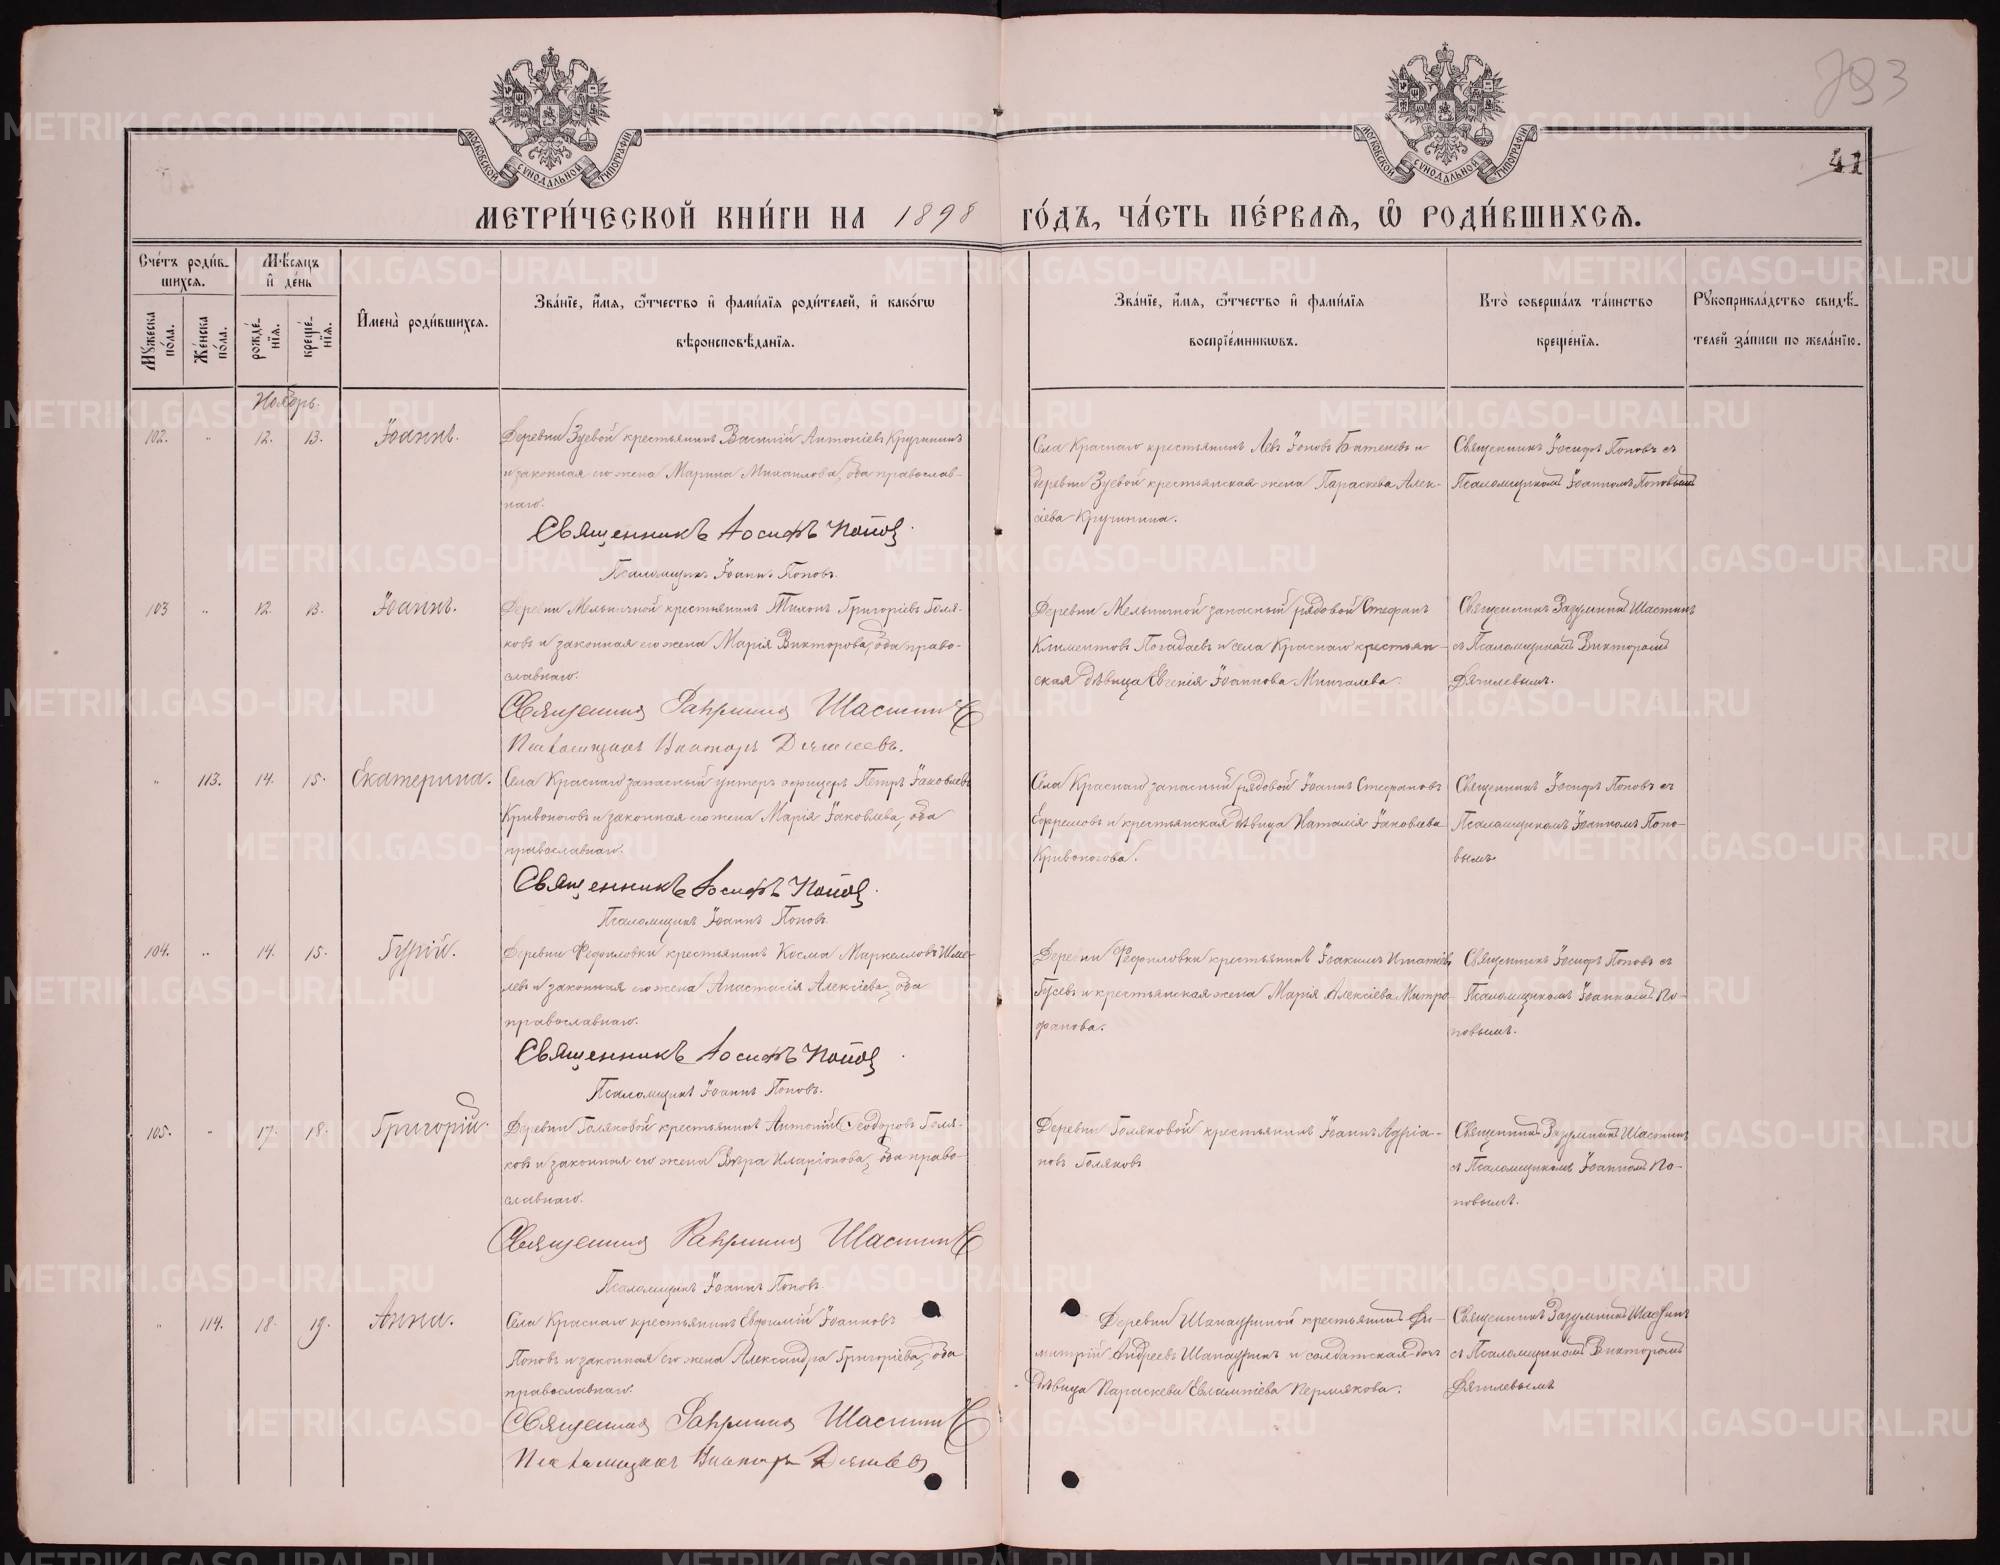 793
41
МОСКОВСКОЙ СѴНОДАЛЬНОЙ ТИПОГРАФІИ
МОСКОВСКОЙ СѴНОДАЛЬНОЙ ТИПОГРАФІИ
МЕТРИ́ЧЕСКОЙ КНИ́ГИ НА 1898 ГО́ДЪ, ЧА́СТЬ ПЕ́РВАѦ, Ѡ҆ РОДИ́ВШИХСѦ.
Сче́тъ роди́в-
шихсѧ.
Мꙋ́жеска по́ла.
Же́нска по́ла.
Мѣ́сѧцъ и҆ де́нь
рожде́-нїѧ.
креще́-нїѧ.
И҆мена̀ роди́вшихсѧ.
Зва́нїе, и҆́мѧ, ѻ҆́тчество и҆ фами́лїѧ роди́телей, и҆ како́гѡ
вѣроисповѣ́данїѧ.
Зва́нїе, и҆́мѧ, ѻ҆́тчество и҆ фами́лїѧ
воспрїе́мникѡвъ.
Кто̀ соверша́лъ та́инство
креще́нїѧ.
Рꙋкоприкла́дство свидѣ́-
телей за́писи по жела́нїю.
Ноябрь.
102. " 12. 13. Іоаннъ.
Деревни Зуевой крестьянинъ Василій Антоніевъ Кругининъ
и законная его жена Марина Михаилова, оба православ-
наго.
Священникъ Іосифъ Поповъ.
Псаломщикъ Іоаннъ Поповъ.
Села Краснаго крестьянинъ Левъ Іоновъ Батеневъ и
деревни Зуевой крестьянская жена Параскева Алек-
сіева Кругинина.
Священникъ Іосифъ Поповъ съ
Псаломщикомъ Іоанномъ Поповымъ
103 " 12. 13. Іоаннъ.
Деревни Мельничной крестьянинъ Тихонъ Григоріевъ Голя-
ковъ и законная его жена Марія Викторова, оба право-
славнаго.
Священникъ Шастинъ
Псаломщикъ Викторъ
Деревни Мельничной запасный рядовой Стефанъ
Климентовъ Погадаевъ и села Краснаго крестьян-
ская дѣвица Евгенія Іоаннова Мингалева.
Священникъ Разумникъ Шастинъ
съ Псаломщикомъ Викторомъ
Дягилевымъ.
" 113. 14. 15. Екатерина.
Села Краснаго запасный унтеръ офицеръ Петръ Іаковлевъ
Кривоноговъ и законная его жена Марія Іаковлева, оба
православнаго.
Священникъ Іосифъ Поповъ.
Псаломщикъ Іоаннъ Поповъ.
Села Краснаго запасный рядовой Іоаннъ Стефановъ
Ефремовъ и крестьянская дѣвица Наталія Іаковлева
Кривоногова.
Священникъ Іосифъ Поповъ съ
Псаломщикомъ Іоанномъ Попо-
вымъ
104. " 14. 15. Гурій.
Деревни Фефиловки крестьянинъ Косма Маркелловъ Шме-
левъ и законная его жена Анастасія Алексіева, оба
православнаго.
Священникъ Іосифъ Поповъ.
Псаломщикъ Іоаннъ Поповъ.
Деревни Фефиловки крестьянинъ Іоакимъ Игнатіевъ
Гусевъ и крестьянская жена Марія Алексіева Митро-
фанова.
Священникъ Іосифъ Поповъ съ
Псаломщикомъ Іоанномъ По-
повымъ.
105. " 17. 18. Григорій.
Деревни Голяковой крестьянинъ Антоній Ѳеодоровъ Голя-
ковъ и законная его жена Вѣра Иларіонова, оба право-
славнаго.
Священникъ Шастинъ
Псаломщикъ Іоаннъ Поповъ.
Деревни Голяковой крестьянинъ Іоаннъ Адріа-
новъ Голяковъ
Священникъ Разумникъ Шастинъ
съ Псаломщикомъ Іоанномъ По-
повымъ.
" 114. 18. 19. Анна.
Села Краснаго крестьянинъ Евфимій Іоанновъ
Поповъ и законная его жена Александра Григоріева, оба
православнаго.
Священникъ Шастинъ
Псаломщикъ Викторъ
Деревни Шапаушной крестьянинъ Ди-
митрій Андреевъ и солдатская дочь
дѣвица Параскева Евлампіева Пермякова.
Священникъ Разумникъ Шастинъ
съ Псаломщикомъ Викторомъ
Дягилевымъ
METRIKI.GASO-URAL.RU